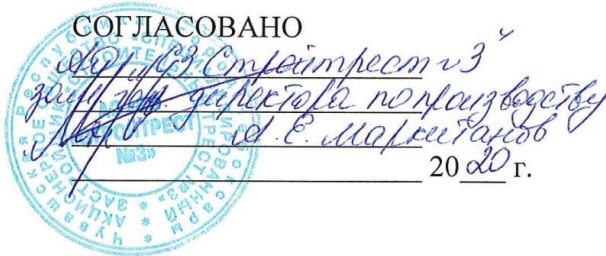 СОГЛАСОВАНО
АО „СЗ Стройтрест №3"
зам. ген. директора по производству
А.Е. Маркитанов
2020 г.
СТРОЙТРЕСТ
№3»